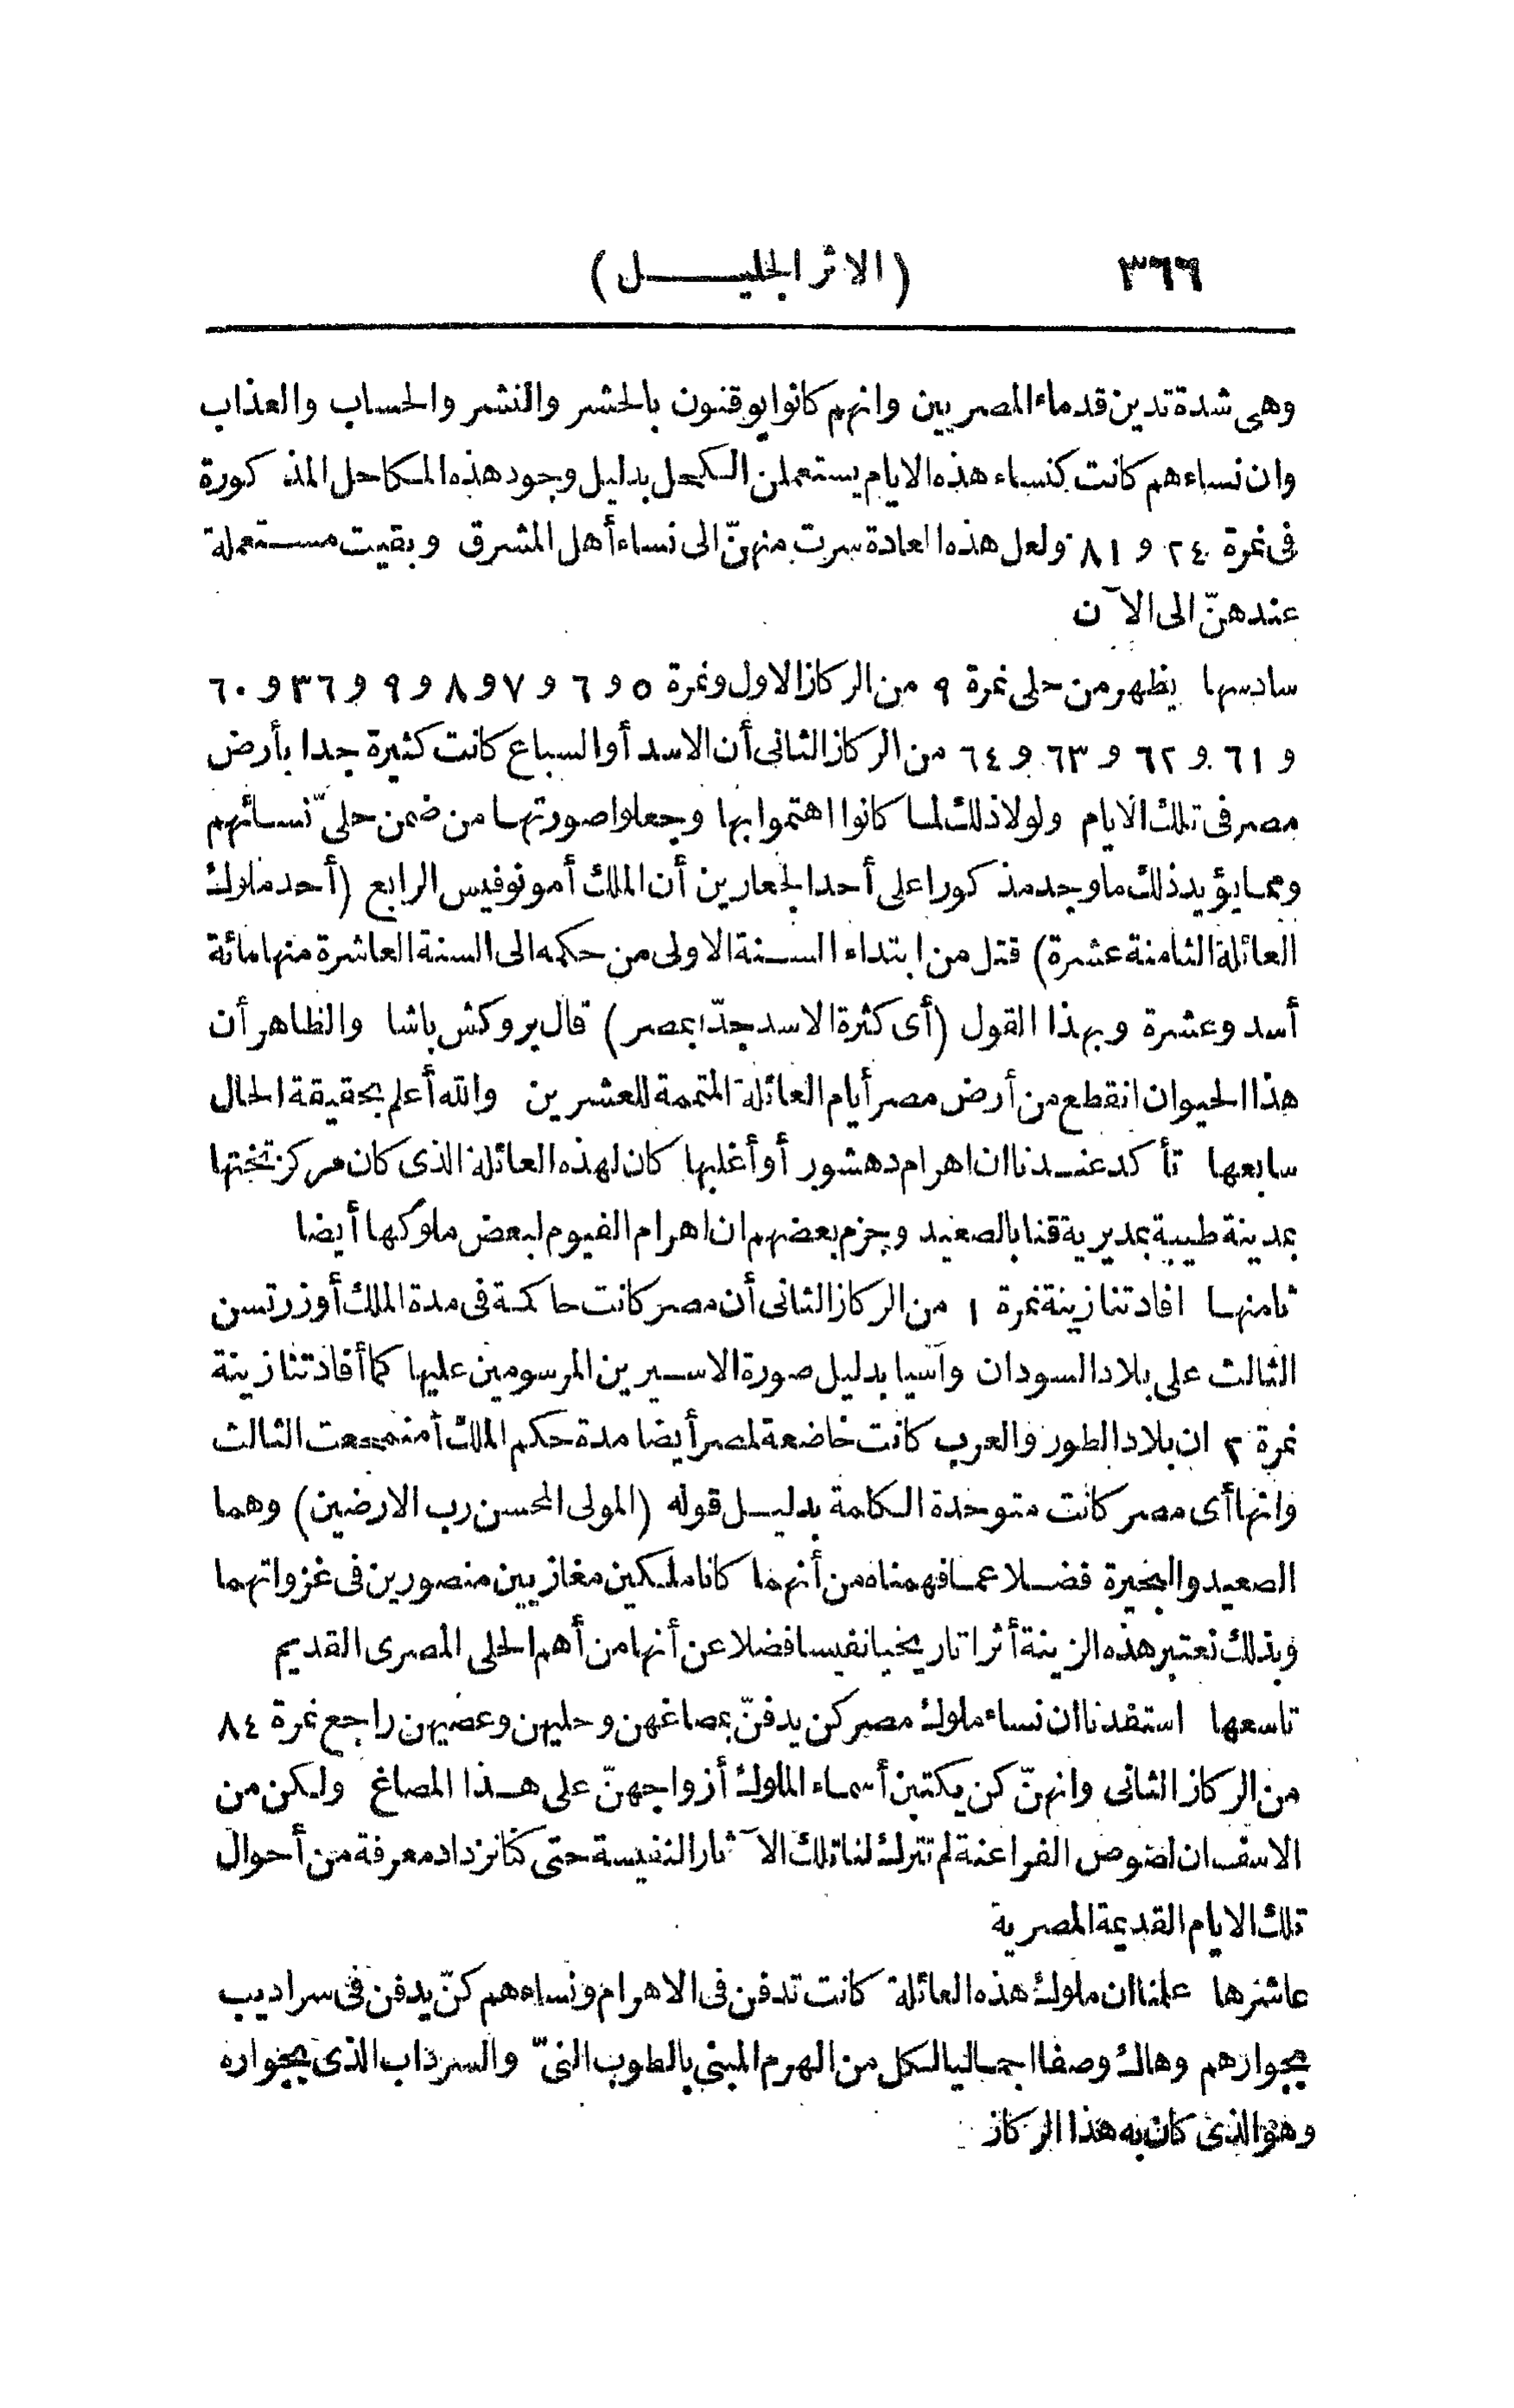 ٣٦٦ (الاثر الجليل)
وهى شدة تدين قدماء المصريين وانهم كانوا يوقنون بالحشر والنشر والحساب والعذاب
وان نساءهم كانت كنساء هذه الايام يستعملن الكحل بدليل وجود هذه المكاحل المذكورة
فى نمرة ٢٤ و ٨١ ولعل هذه العادة سرت منهنّ الى نساء أهل المشرق وبقيت مستعملة
عندهنّ الى الآن
سادسها يظهر من حلى نمرة ٩ من الركاز الاول ونمرة ٥ و ٦ و ٧ و ٨ و ٩ و ٣٦ و ٦٠
و ٦١ و ٦٢ و ٦٣ و ٦٤ من الركاز الثانى أن الاسد أو السباع كانت كثيرة جدا بأرض
مصر فى تلك الايام ولولا ذلك لما كانوا اهتموا بها وجعلوا صورتها من ضمن حلىّ نسائهم
ومما يؤيد ذلك ما وجد مذكورا على أحد الجعارين أن الملك أمونوفيس الرابع (أحد ملوك
العائلة الثامنة عشرة) قتل من ابتداء السنة الاولى من حكمه الى السنة العاشرة منها مائة
أسد وعشرة وبهذا القول (أى كثرة الاسد جدّا بمصر) قال بروكش باشا والظاهر أن
هذا الحيوان انقطع من أرض مصر أيام العائلة المتممة للعشرين والله أعلم بحقيقة الحال
سابعها تأكد عندنا ان اهرام دهشور أو أغلبها كان لهذه العائلة الذى كان مركز تختها
بمدينة طيبة بمديرية قنا بالصعيد وجزم بعضهم ان اهرام الفيوم لبعض ملوكها أيضا
ثامنها افادتنا زينة نمرة ١ من الركاز الثانى أن مصر كانت حاكمة فى مدة الملك أوزرتسن
الثالث على بلاد السودان وآسيا بدليل صورة الاسيرين المرسومين عليها كما أفادتنا زينة
نمرة ٢ ان بلاد الطور والعرب كانت خاضعة لمصر أيضا مدة حكم الملك أمنمحعت الثالث
وانها أى مصر كانت متوحدة الكلمة بدليل قوله (المولى المحسن رب الارضين) وهما
الصعيد والبحيرة فضلا عما فهمناه من أنهما كانا ملكين مغازيين منصورين فى غزواتهما
وبذلك نعتبر هذه الزينة أثرا تاريخيا نفيسا فضلا عن أنها من أهم الحلى المصرى القديم
تاسعها استفدنا ان نساء ملوك مصر كن يدفنّ بمصاغهن وحليهن وعصيهن راجع نمرة ٨٤
من الركاز الثانى وانهنّ كن يكتبن أسماء الملوك أزواجهنّ على هذا المصاغ ولكن من
الاسف ان لصوص الفراعنة لم تترك لنا تلك الآثار النفيسة حتى كنا نزداد معرفة من أحوال
تلك الايام القديمة المصرية
عاشرها علمنا ان ملوك هذه العائلة كانت تدفن فى الاهرام ونساءهم كنّ يدفن فى سراديب
بجوارهم وهاك وصفا اجماليا لكل من الهرم المبنى بالطوب النىّ والسرداب الذى بجواره
وهو الذى كان به هذا الركاز